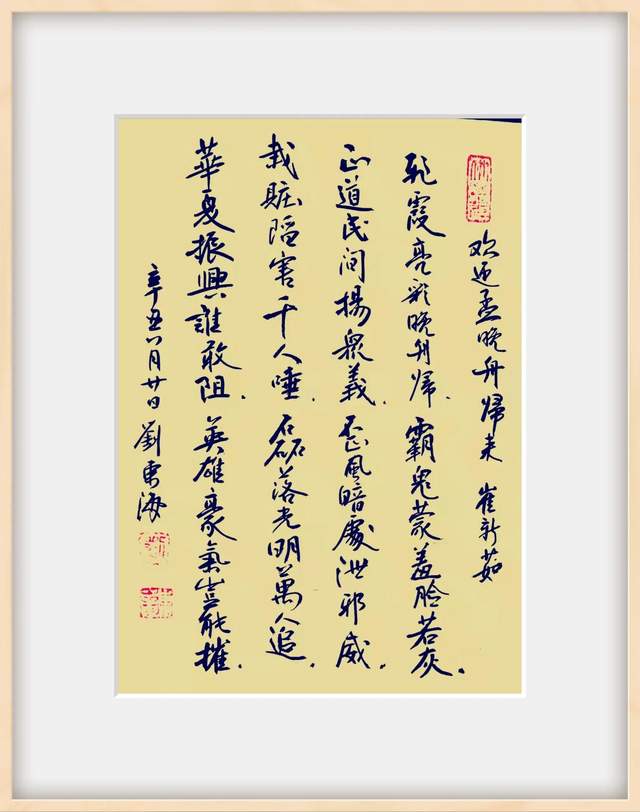 欢迎孟晚舟归来 崔新茹
彩霞亮彩晚舟归.霸鬼蒙羞脸若灰.
正道民间揚眾義.歪风暗處泄邪威.
栽賍陷害千人唾.磊落光明萬人追.
華夏振興誰敢阻.英雄豪氣豈能摧.
辛丑八月廿日劉東海